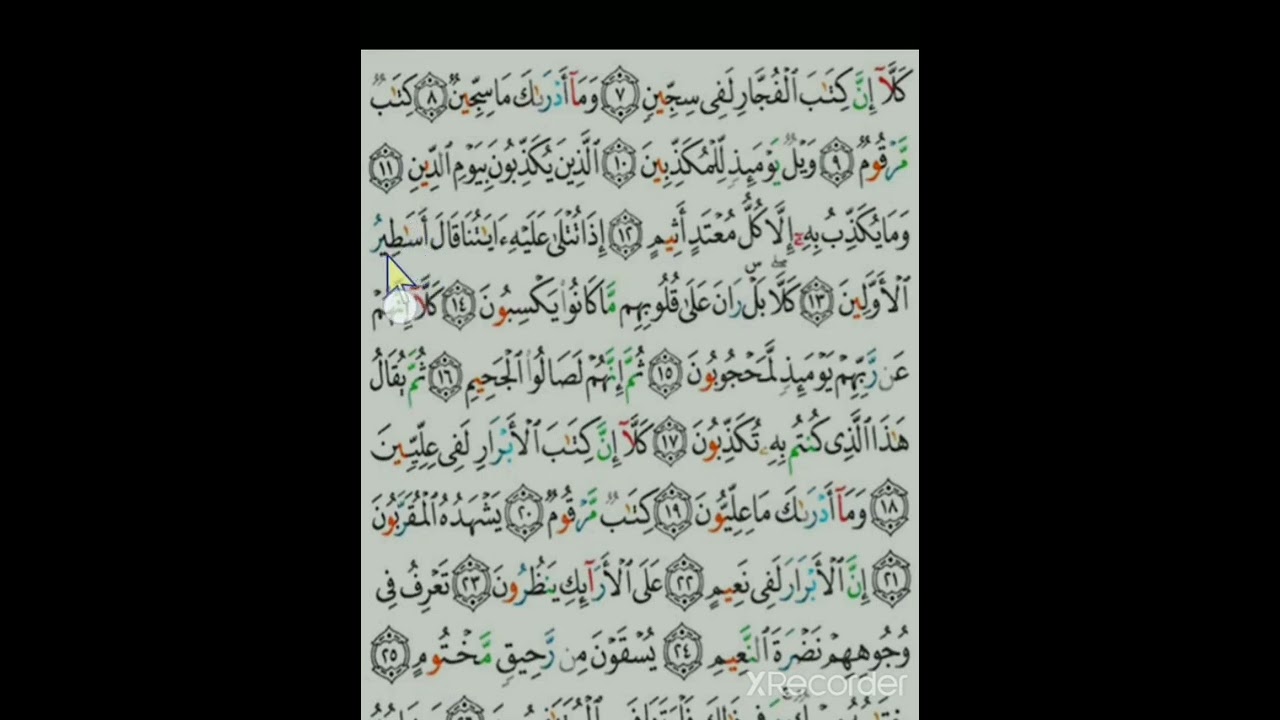 كَلَّآ إِنَّ كِتَٰبَ ٱلْفُجَّارِ لَفِى سِجِّينٍ ٧ وَمَآ أَدْرَىٰكَ مَا سِجِّينٌ ٨ كِتَٰبٌ
مَّرْقُومٌ ٩ وَيْلٌ يَوْمَئِذٍ لِّلْمُكَذِّبِينَ ١٠ ٱلَّذِينَ يُكَذِّبُونَ بِيَوْمِ ٱلدِّينِ ١١
وَمَا يُكَذِّبُ بِهِۦٓ إِلَّا كُلُّ مُعْتَدٍ أَثِيمٍ ١٢ إِذَا تُتْلَىٰ عَلَيْهِ ءَايَٰتُنَا قَالَ أَسَٰطِيرُ
ٱلْأَوَّلِينَ ١٣ كَلَّا ۖ بَلْ ۜ رَانَ عَلَىٰ قُلُوبِهِم مَّا كَانُوا۟ يَكْسِبُونَ ١٤ كَلَّآ إِنَّهُمْ
عَن رَّبِّهِمْ يَوْمَئِذٍ لَّمَحْجُوبُونَ ١٥ ثُمَّ إِنَّهُمْ لَصَالُوا۟ ٱلْجَحِيمِ ١٦ ثُمَّ يُقَالُ
هَٰذَا ٱلَّذِى كُنتُم بِهِۦ تُكَذِّبُونَ ١٧ كَلَّآ إِنَّ كِتَٰبَ ٱلْأَبْرَارِ لَفِى عِلِّيِّينَ
١٨ وَمَآ أَدْرَىٰكَ مَا عِلِّيُّونَ ١٩ كِتَٰبٌ مَّرْقُومٌ ٢٠ يَشْهَدُهُ ٱلْمُقَرَّبُونَ
٢١ إِنَّ ٱلْأَبْرَارَ لَفِى نَعِيمٍ ٢٢ عَلَى ٱلْأَرَآئِكِ يَنظُرُونَ ٢٣ تَعْرِفُ فِى
وُجُوهِهِمْ نَضْرَةَ ٱلنَّعِيمِ ٢٤ يُسْقَوْنَ مِن رَّحِيقٍ مَّخْتُومٍ ٢٥
XRecorder